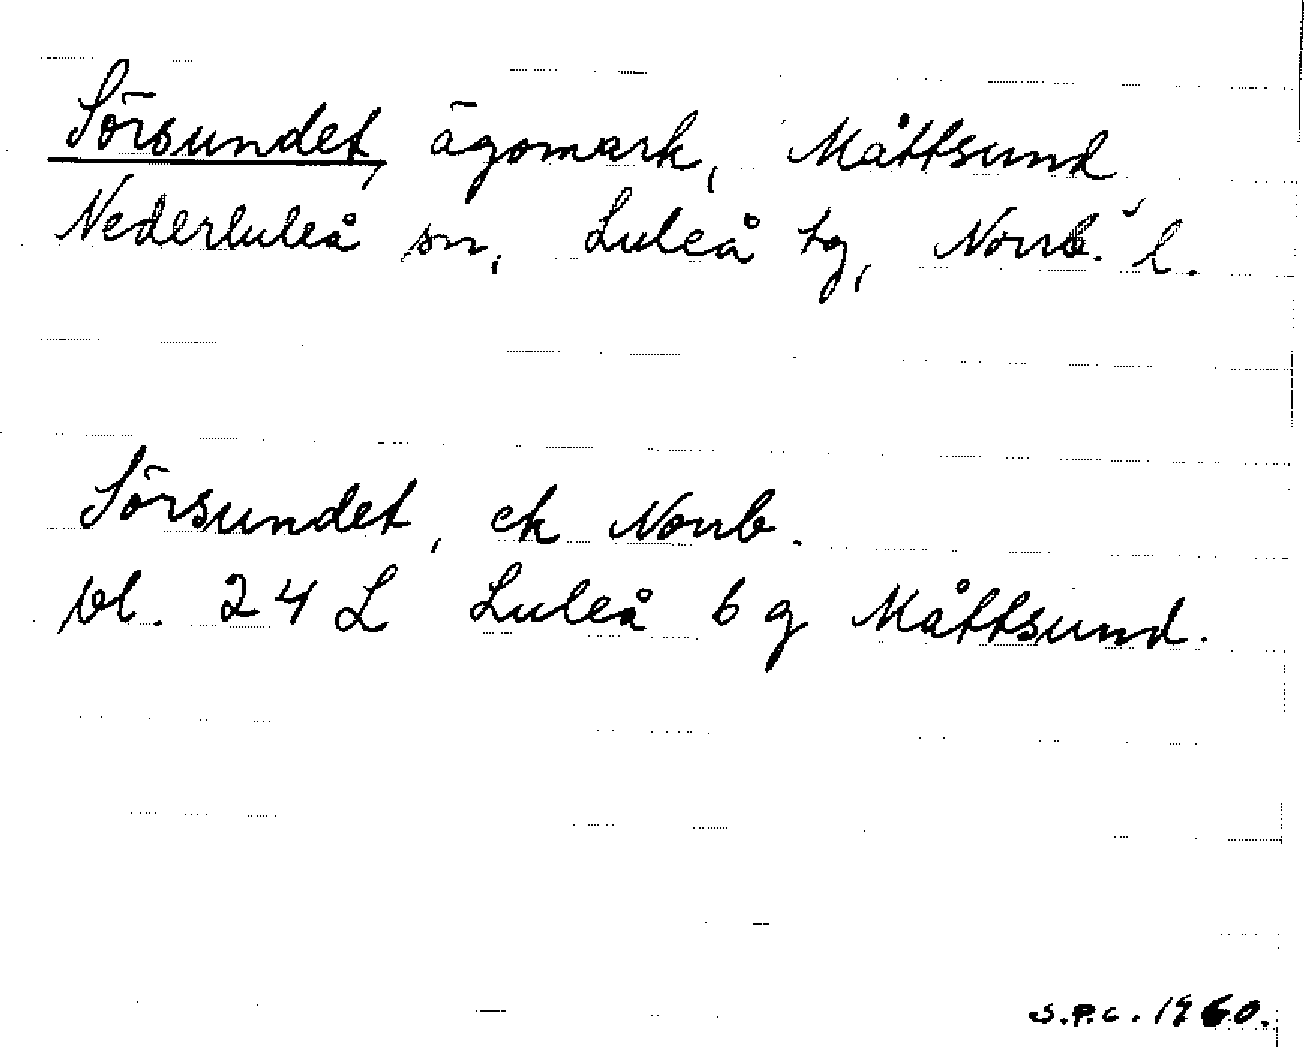 Sörsundet, ägomark, Måttsund,
Nederluleå sn, Luleå tg, Norrb. l.
Sörsundet, ek Norrb.
bl. 24 L Luleå 6 g Måttsund.
S.P.C. 1960.